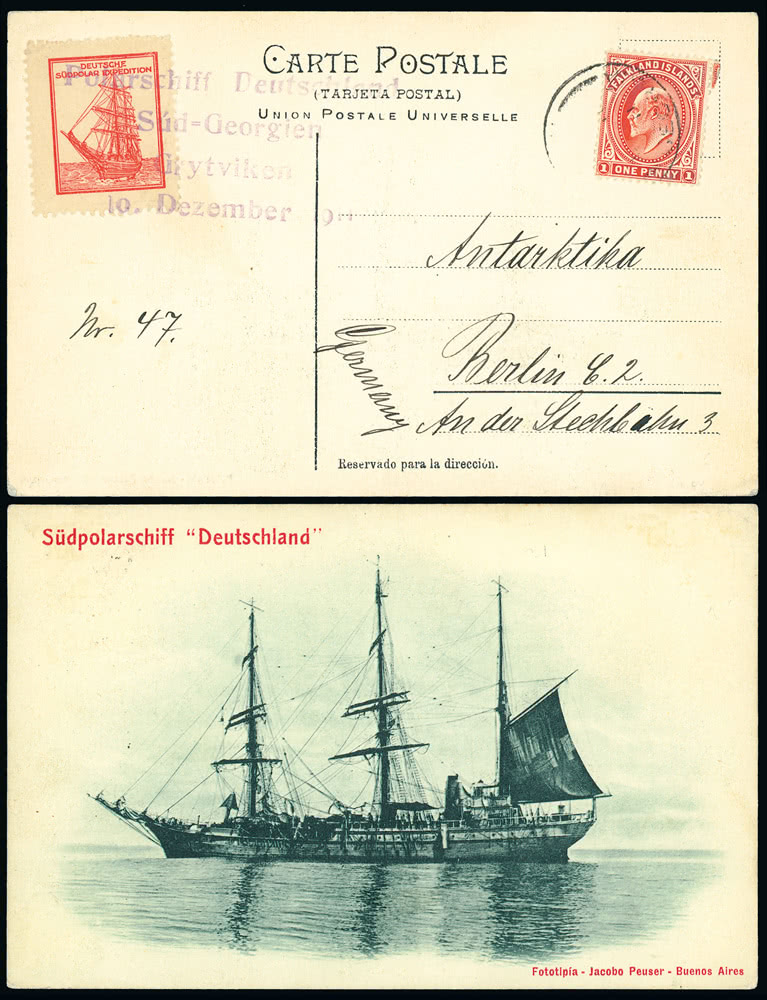 DEUTSCHE
SÜDPOLAR EXPEDITION
Polarschiff Deutschland
Süd=Georgien
Grytviken
10. Dezember 1911
CARTE POSTALE
(TARJETA POSTAL)
UNION POSTALE UNIVERSELLE
FALKLAND ISLANDS
1 ONE PENNY 1
Nr. 47.
Antarktika
Berlin C. 2.
An der Stechbahn 3
Germany
Reservado para la dirección.
Südpolarschiff "Deutschland"
Fototipía - Jacobo Peuser - Buenos Aires